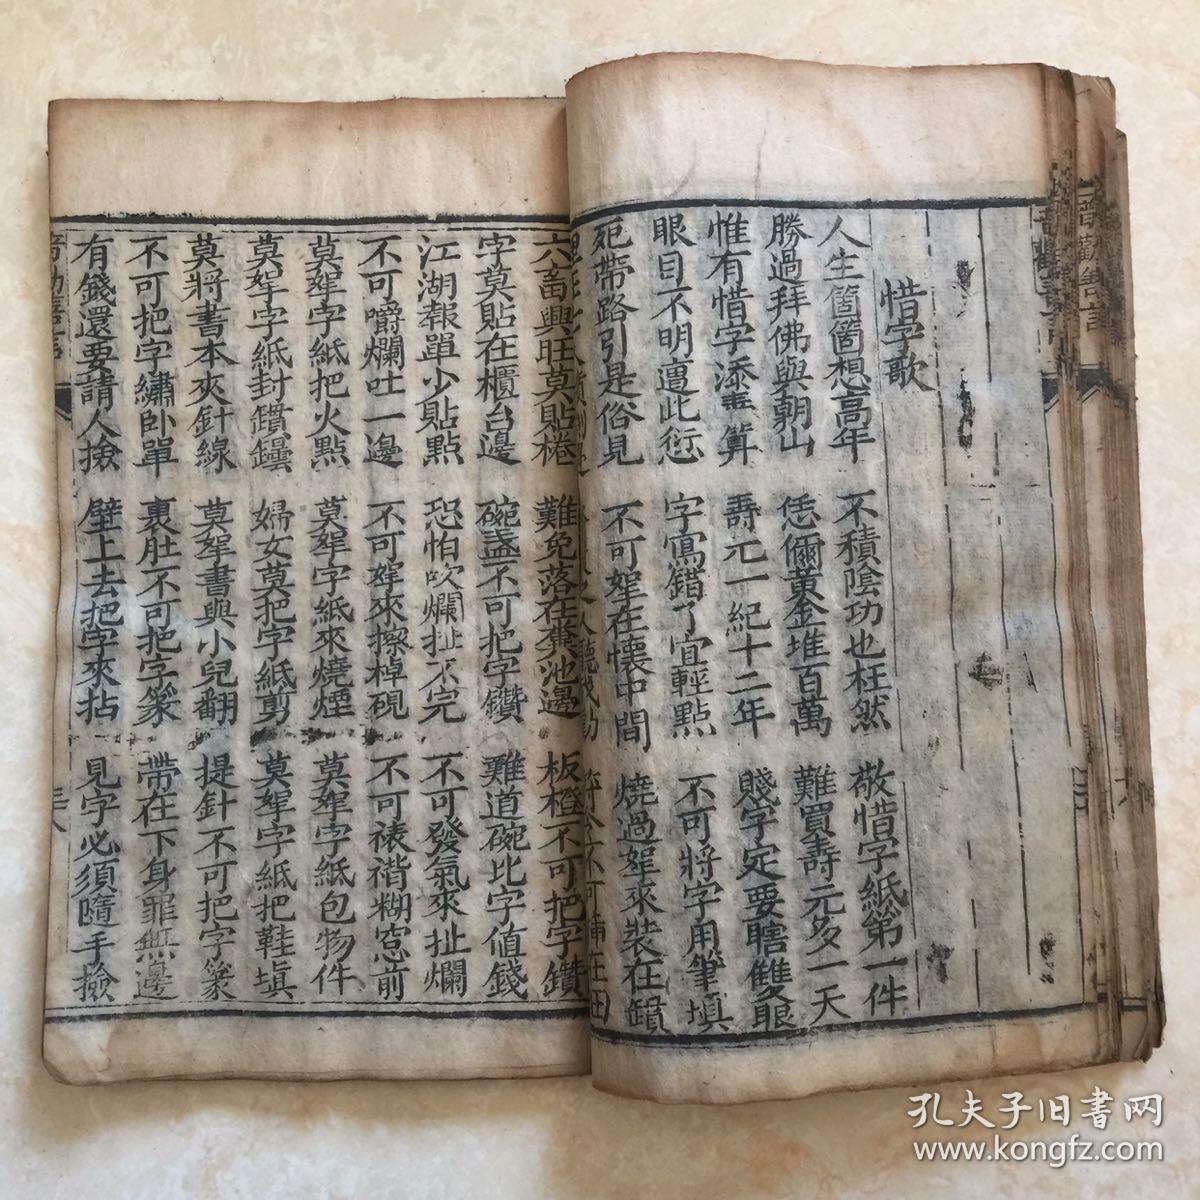 惜字歌
人生箇箇想高年 不積陰功也枉然 敬惜字紙第一件
勝過拜佛與朝山 恁儞黃金堆百萬 難買壽元多一天
惟有惜字添壽算 壽元一紀十二年 賤字定要瞎雙眼
眼目不明遭此愆 字寫錯了宜輕點 不可將字用筆填
死帶路引是俗見 不可拏在懷中間 燒過拏來裝在鑵
六畜興旺莫貼棬 難免落在糞池邊 板櫈不可把字鑽
字莫貼在櫃台邊 碗盞不可把字鑽 難道碗比字值錢
江湖報單少貼點 恐怕吹爛扯不完 不可發氣來扯爛
不可嚼爛吐一邊 不可拏來擦棹硯 不可裱褙糊窓前
莫拏字紙把火點 莫拏字紙來燒煙 莫拏字紙包物件
莫拏字紙封鑵鑵 婦女莫把字紙剪 莫拏字紙把鞋填
莫將書本夾針線 莫拏書與小兒翻 提針不可把字篆
不可把字繡臥單 裹肚不可把字篆 帶在下身罪無邊
有錢還要請人撿 壁上去把字來拈 見字必須隨手撿
普勸善言
孔夫子旧书网
www.kongfz.com